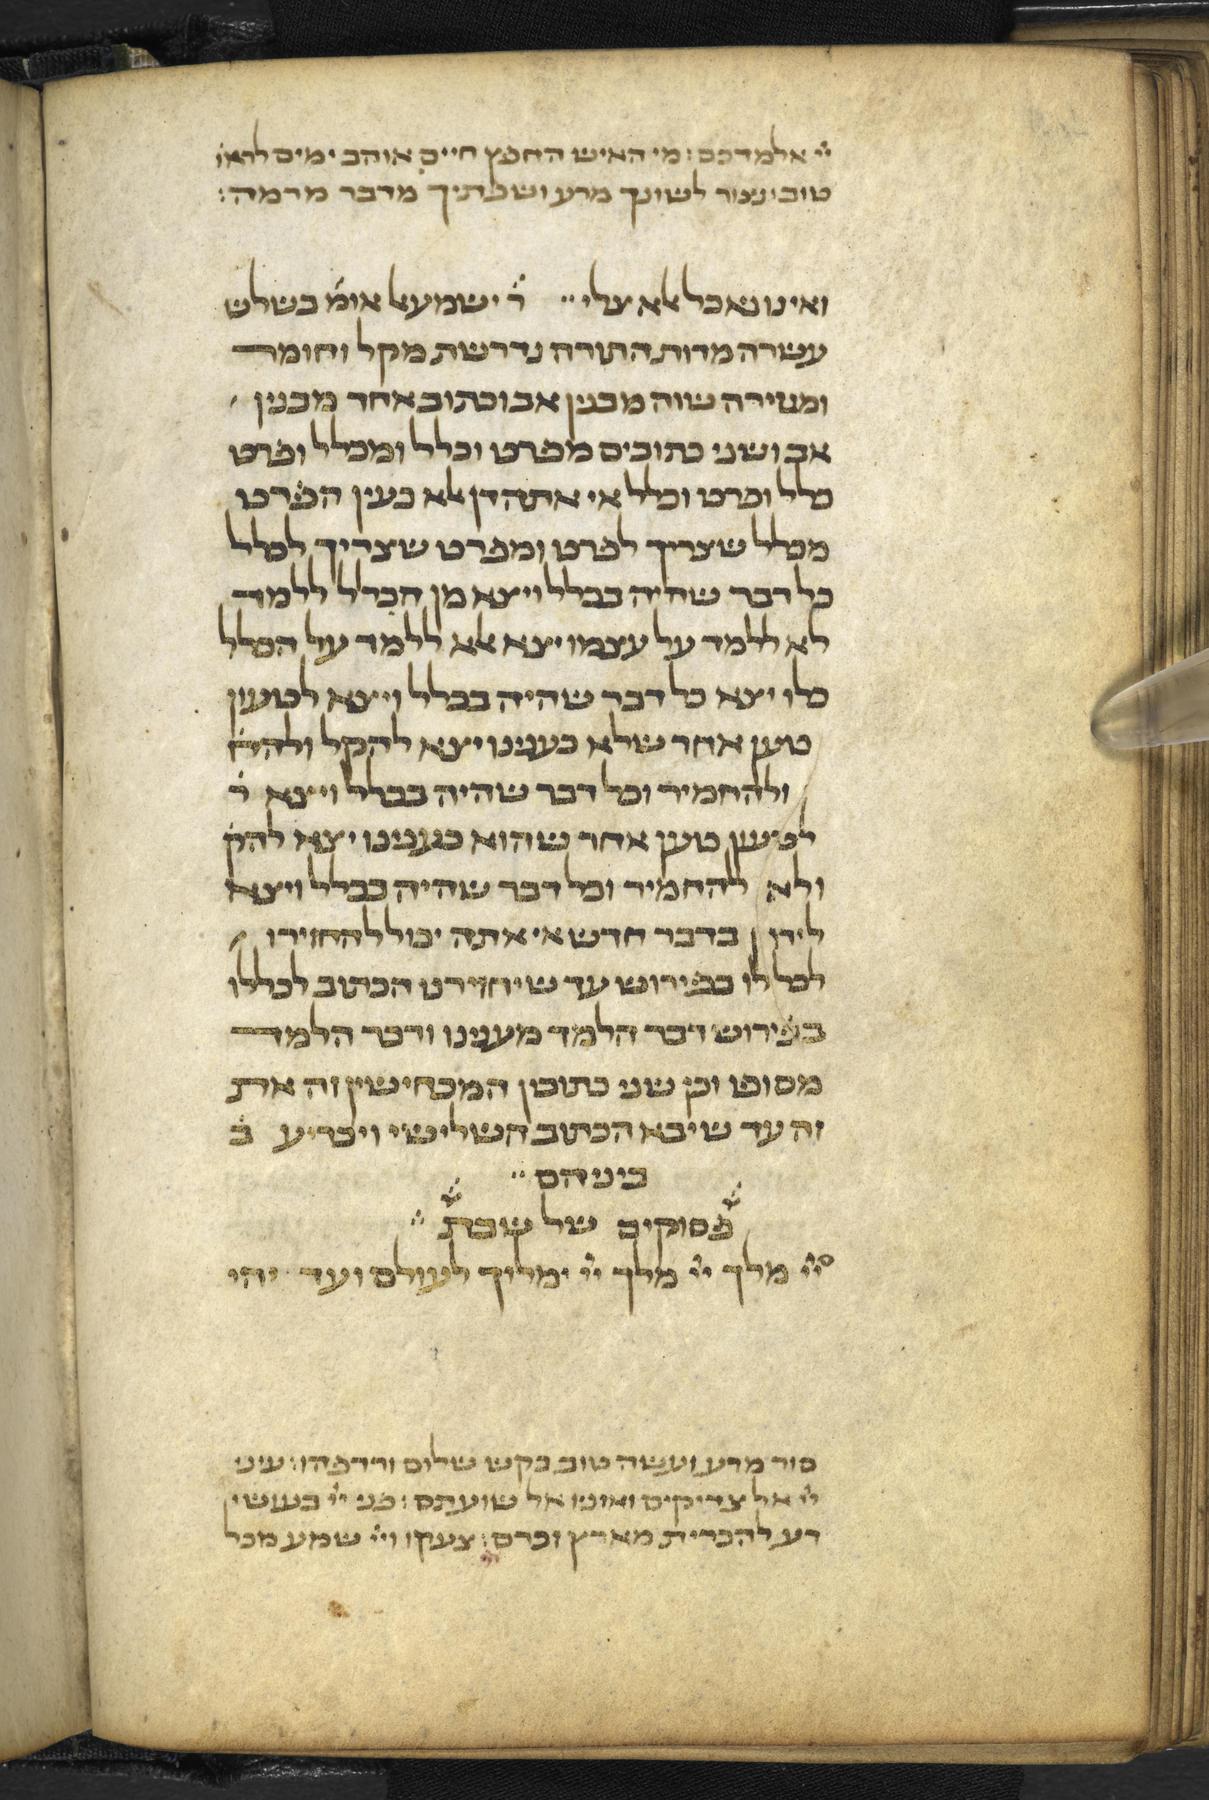 יי אלמדכם: מי האיש החפץ חיים אוהב ימים לראו
טוב: נצור לשונך מרע ושפתיך מדבר מרמה:
ואינו נאכל אלא צלי ·· ר׳ ישמעאל אומ׳ בשלש
עשרה מדות התורה נדרשת מקל וחומר
ומגזירה שוה מבנין אב וכתוב אחד מבנין
אב ושני כתובים מפרט וכלל ומכלל ופרט
כלל ופרט וכלל אי אתה דן אלא כעין הפרט
מכלל שצריך לפרט ומפרט שצריך לכלל
כל דבר שהיה בכלל ויצא מן הכלל ללמד
לא ללמד על עצמו יצא אלא ללמד על הכלל
כלו יצא כל דבר שהיה בכלל ויצא לטעון
טען אחר שלא כענינו יצא להקל ולהח׳
ולהחמיר וכל דבר שהיה בכלל ויצא ר׳
לטעון טען אחר שהוא כענינו יצא להק׳
ולא להחמיר וכל דבר שהיה בכלל ויצא
לידון בדבר חדש אי אתה יכול להחזירו
לכללו בפירוש עד שיחזירנו הכתוב לכללו
בפירוש דבר הלמד מענינו ודבר הלמד
מסופו וכן שני כתובין המכחישין זה את
זה עד שיבא הכתוב השלישי ויכריע ב׳
ביניהם ··
פסוקים של שבת ··
יי מלך יי מלך יי ימלוך לעולם ועד יהי
סור מרע ועשה טוב בקש שלום ורדפהו: עיני
יי אל צדיקים ואזניו אל שועתם: פני יי בעושי
רע להכרית מארץ זכרם: צעקו ויי שמע מכל